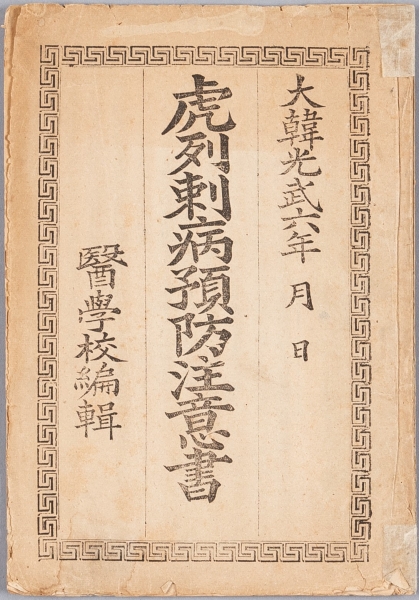 大韓光武六年 月 日
虎列剌病預防注意書
醫學校編輯